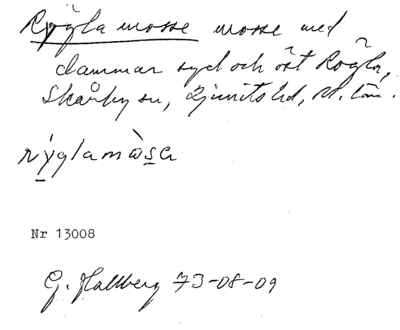 Rögla mosse mosse med
dammar syd och öst Rögla,
Skårby sn, Ljunits hd, M. län.
rỳglamòsa
Nr 13008
G. Hallberg 73-08-09